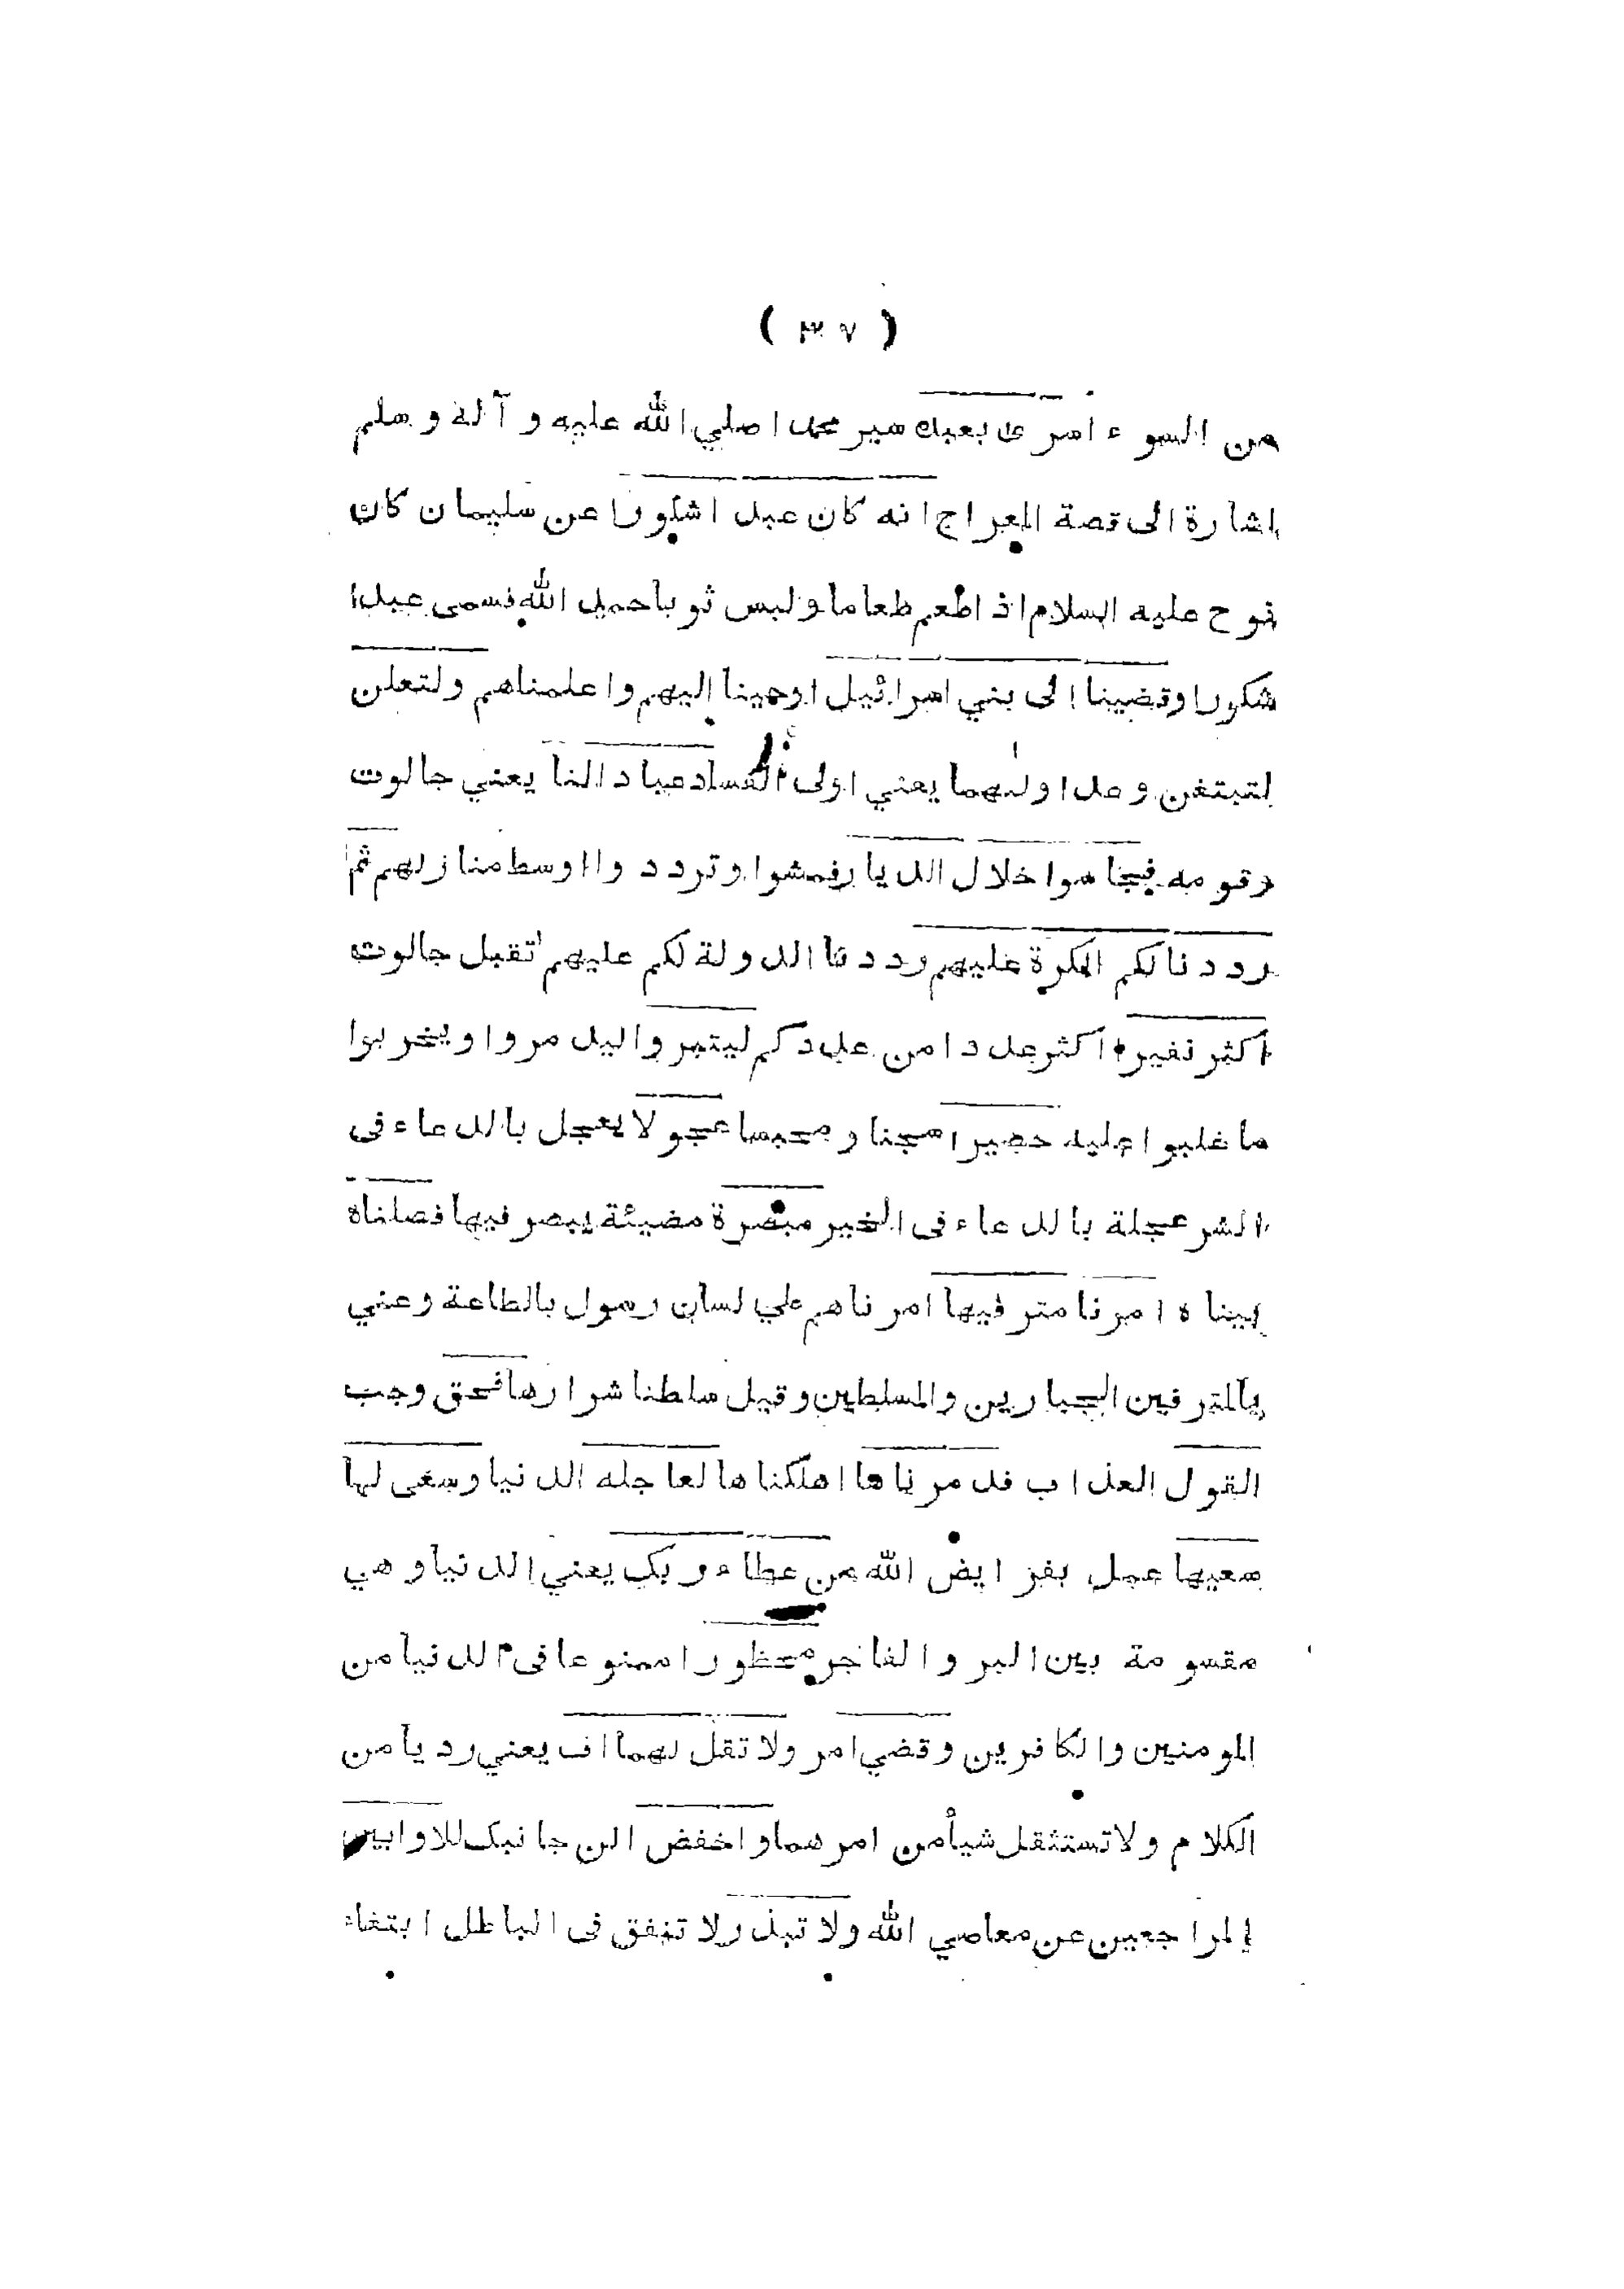 ( ٣٧ )
من السوء اسرى بعبده سير محمدا صلي الله عليه و آله و سلم
اشارة الى قصة المعراج انه كان عبدا شكورا عن سليمان كان
نوح عليه السلام اذا طعم طعاما و لبس ثوبا حميد الله فسمى عبدا
شكورا وقضينا الى بني اسرائيل اوحينا اليهم واعلمناهم ولتعلن
لتبتغن وعد اولهما يعني اولى الفساد عبادا لنا يعني جالوت
وقومه فجاسوا خلال الديار فمشوا وترددوا اوسط منازلهم ثم
رددنا لكم الكرة عليهم ورددنا الدولة لكم عليهم تقبل جالوت
اكثر نفيرا اكثر عددا من عددكم ليتبروا ليدمروا ويخربوا
ما غلبوا عليه حصيرا سجنا ومحبسا عجولا يعجل بالدعاء فى
الشر عجلة بالدعاء فى الخير مبصرة مضيئة يبصر فيها فصلناه
بيناه امرنا مترفيها امرناهم علي لسان رسول بالطاعة وعني
بالمترفين الجبارين والمسلطين وقيل سلطنا شرارها فحق وجب
القول العذاب فدمرناها اهلكناها العاجله الدنيا وسعى لها
سعيها عمل بفرايض الله من عطاء ربك يعني الدنيا وهي
مقسومة بين البر والفاجر محظورا ممنوعا فى الدنيا من
المومنين والكافرين وقضي امر ولا تقل لهما اف يعني رديا من
الكلام ولا تستثقل شيأ من امرهما واخفض الن جانبك للاوابين
المراجعين عن معاصي الله ولا تبذر لا تنفق فى الباطل ابتغاء